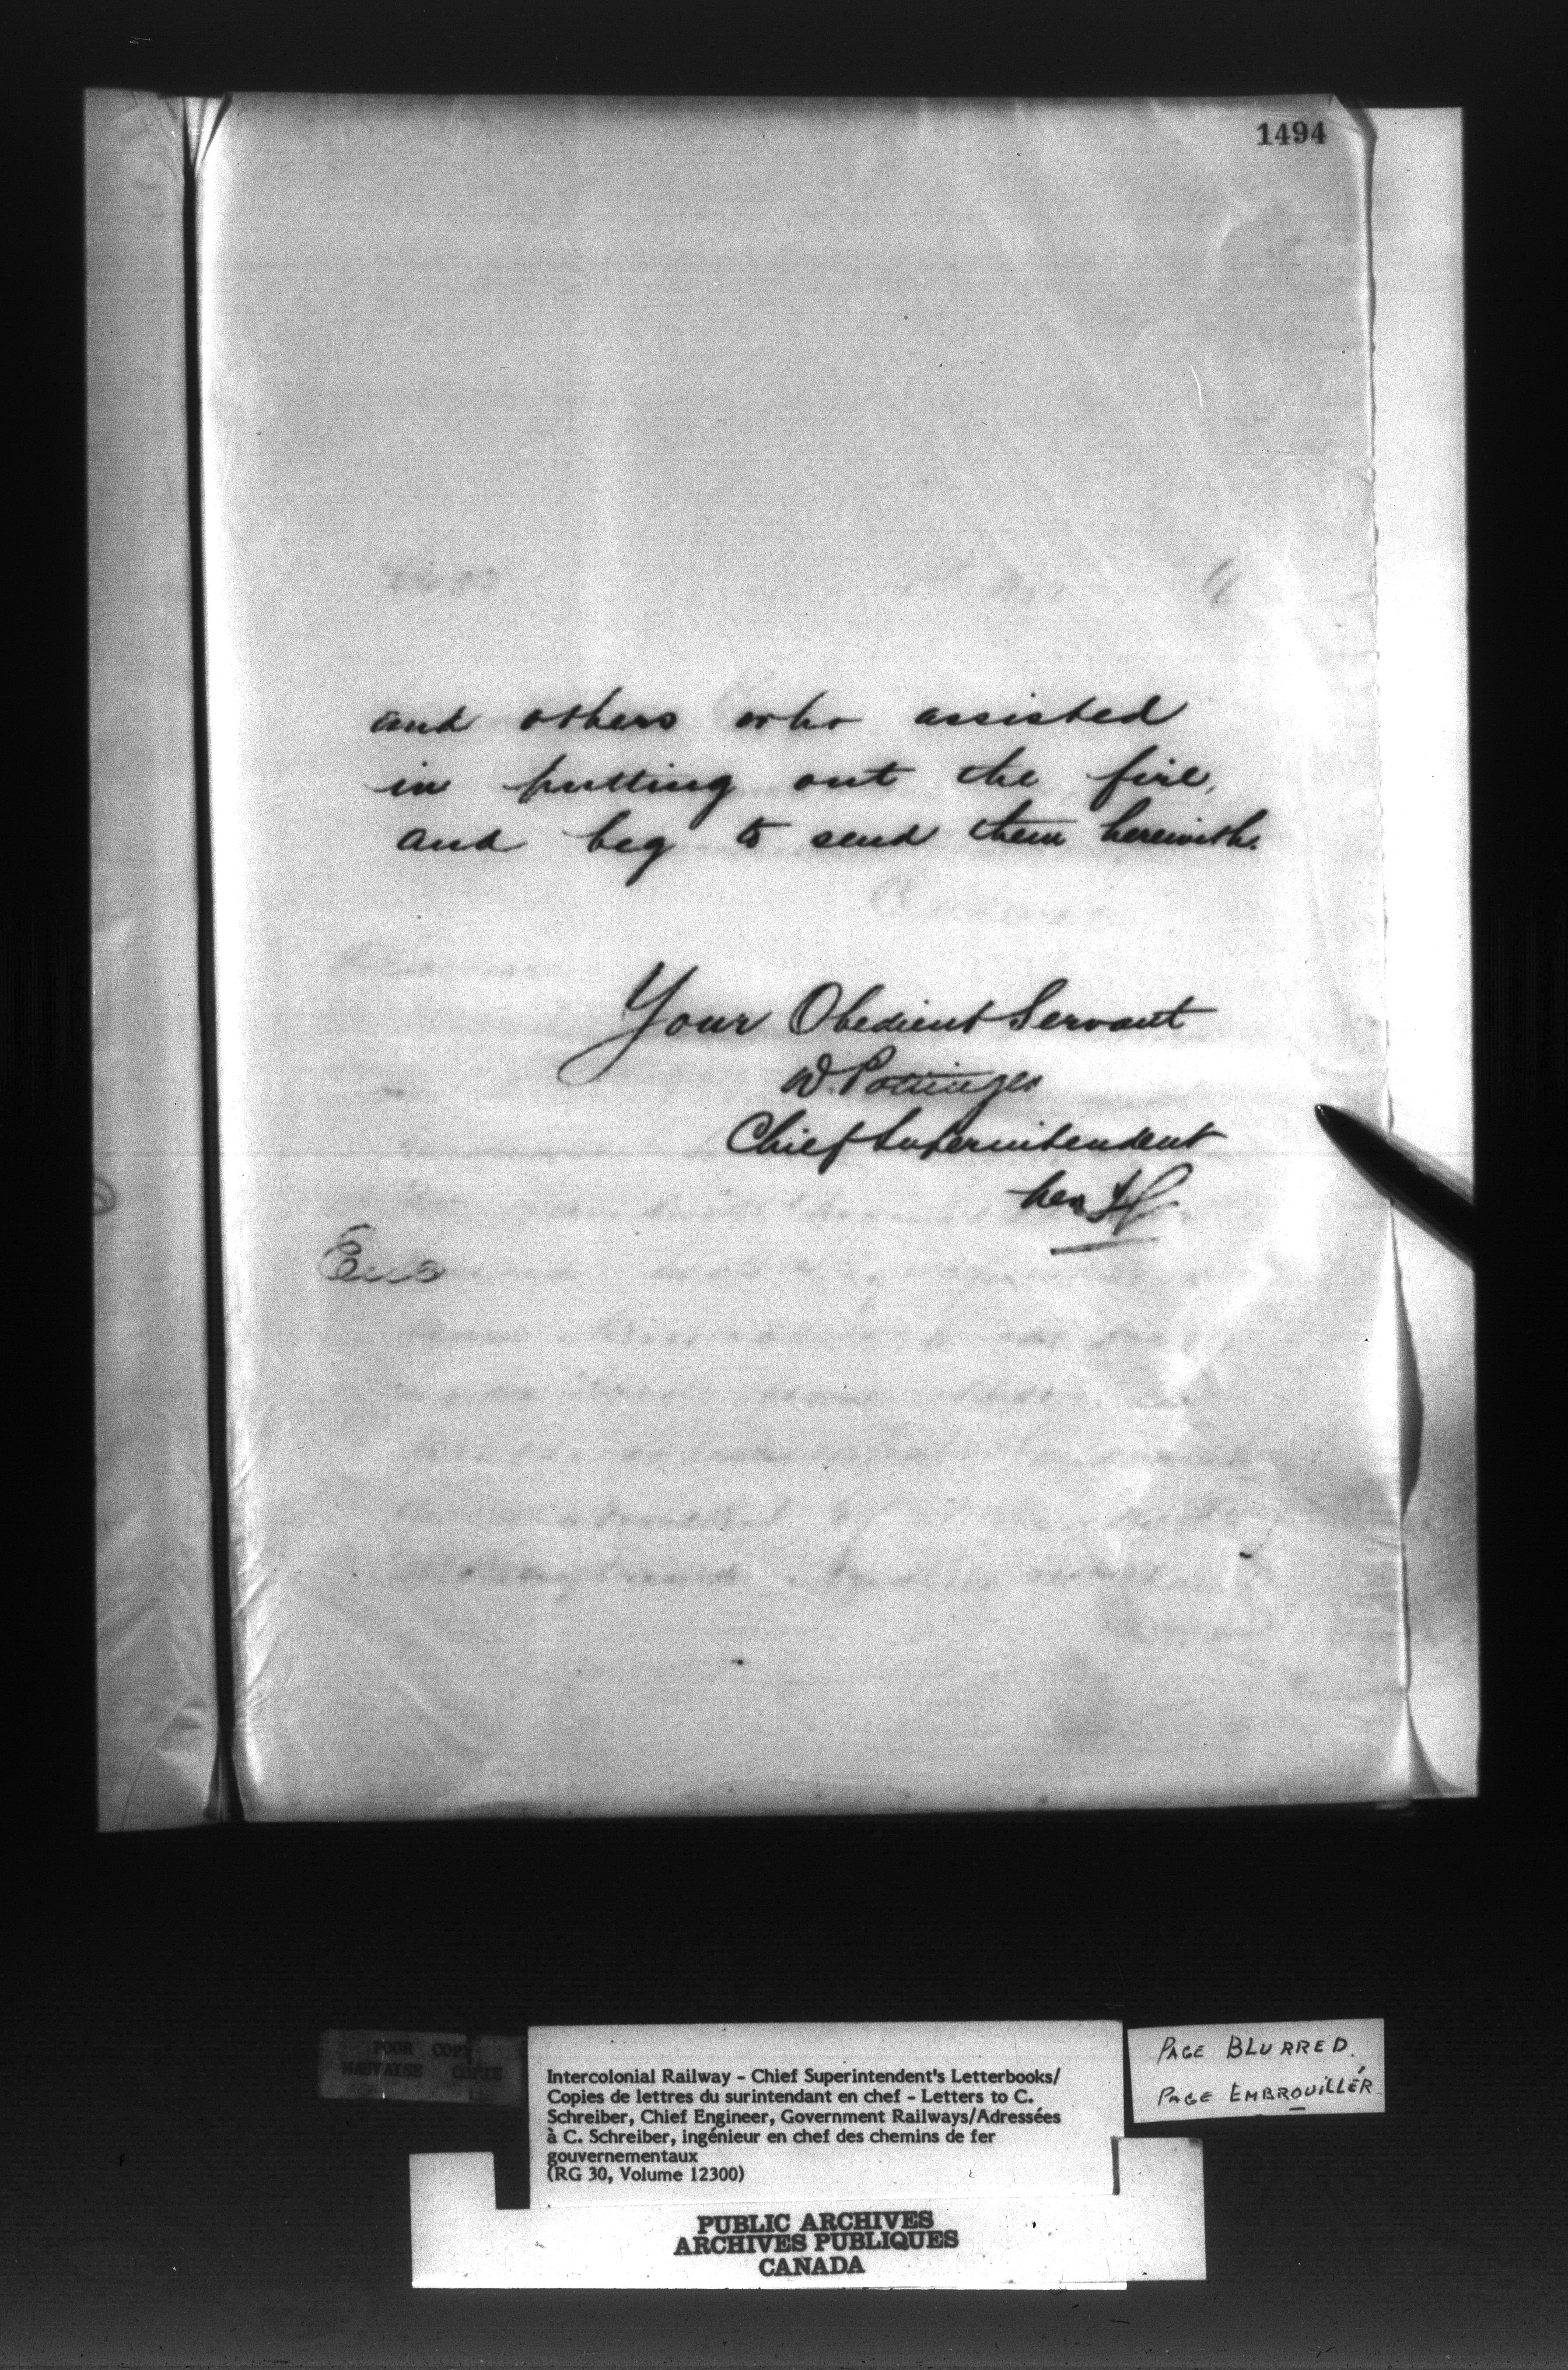 1494
and others who assisted
in putting out the fire,
and beg to send them herewith.
Your Obedient Servant
D. Pottinger
Chief Superintendent
per
Encs
POOR COPY
MAUVAISE COPIE
Intercolonial Railway - Chief Superintendent's Letterbooks/
Copies de lettres du surintendant en chef - Letters to C.
Schreiber, Chief Engineer, Government Railways/Adressées
à C. Schreiber, ingénieur en chef des chemins de fer
gouvernementaux
(RG 30, Volume 12300)
PAGE BLURRED.
PAGE EMBROUILLÉR
PUBLIC ARCHIVES
ARCHIVES PUBLIQUES
CANADA